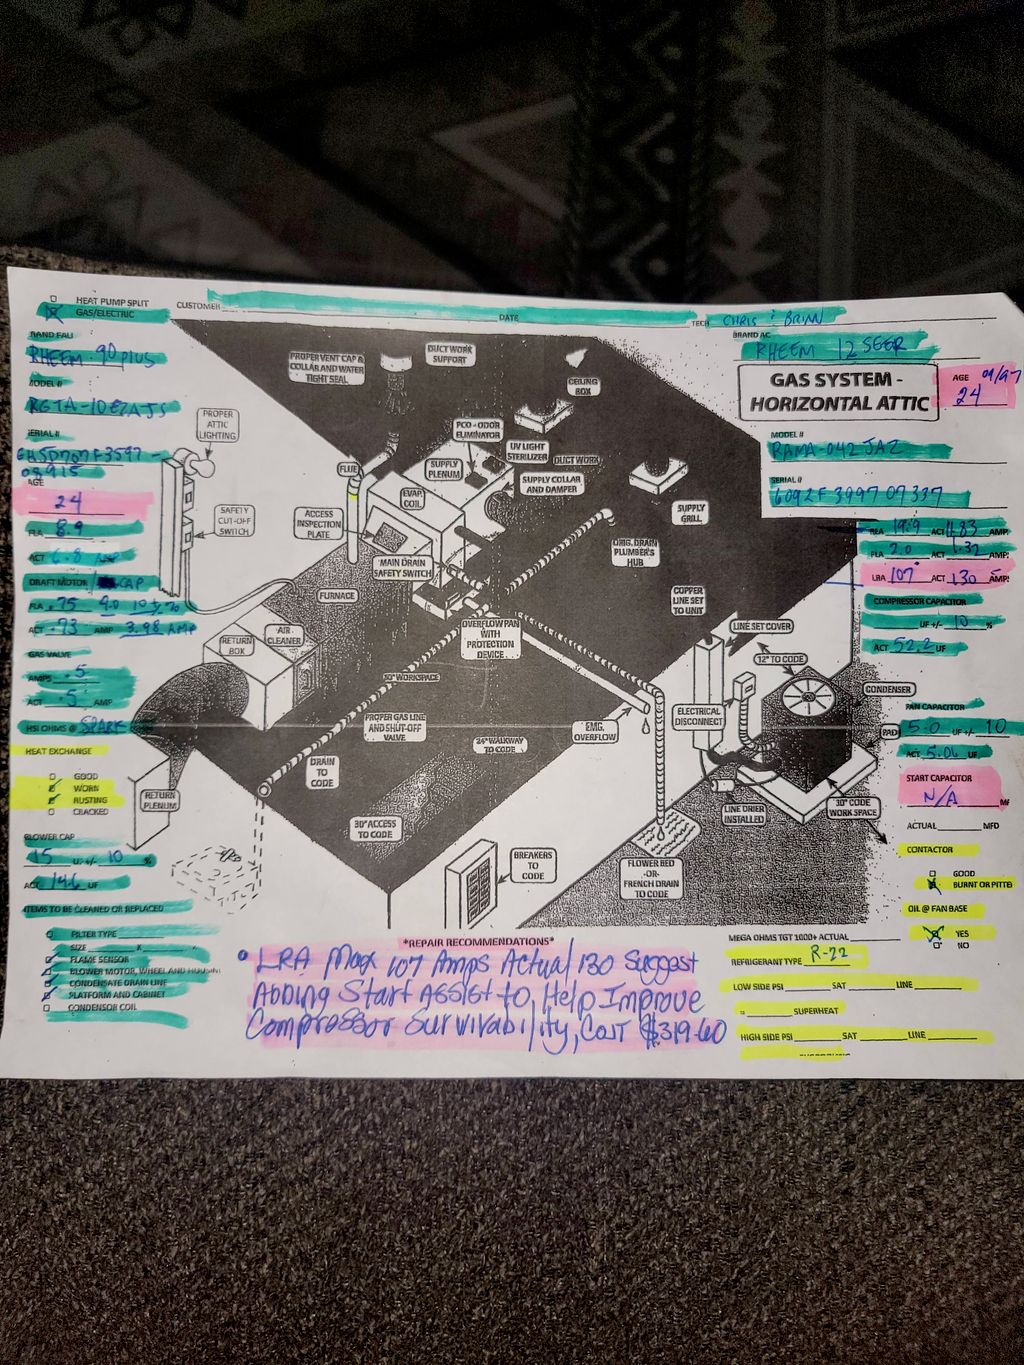 HEAT PUMP SPLIT
GAS/ELECTRIC
CUSTOMER
DATE
TECH CHRIS & BRIAN
BRAND AC
RHEEM 12 SEER
RHEEM 90 PLUS
MODEL #
SERIAL #
AGE
24
FLA 8.9
ACT 6.8 AMP
DRAFT MOTOR CAP
FLA .75
ACT .73 AMP 3.98 AMP
GAS VALVE
AMPS .5
ACT .5 AMP
HSI OHMS @ SPARK
HEAT EXCHANGE
GOOD
WORN
RUSTING
CRACKED
BLOWER CAP
15 UF +/- 10 %
ACT 14.6 UF
ITEMS TO BE CLEANED OR REPLACED
FILTER TYPE
SIZE X X
FLAME SENSOR
BLOWER MOTOR, WHEEL AND HOUSING
CONDENSATE DRAIN LINE
PLATFORM AND CABINET
CONDENSOR COIL
PROPER VENT CAP & COLLAR AND WATER TIGHT SEAL
DUCT WORK SUPPORT
CEILING BOX
PROPER ATTIC LIGHTING
PCO - ODOR ELIMINATOR
UV LIGHT STERILIZER
DUCT WORK
FLUE
SUPPLY PLENUM
SUPPLY COLLAR AND DAMPER
EVAP. COIL
SUPPLY GRILL
SAFETY CUT-OFF SWITCH
ACCESS INSPECTION PLATE
MAIN DRAIN SAFETY SWITCH
ORIG. DRAIN PLUMBER'S HUB
FURNACE
COPPER LINE SET TO UNIT
RETURN BOX
AIR CLEANER
OVERFLOW PAN WITH PROTECTION DEVICE
LINE SET COVER
12" TO CODE
30" WORKSPACE
CONDENSER
ELECTRICAL DISCONNECT
PROPER GAS LINE AND SHUT-OFF VALVE
EMG. OVERFLOW
PAD
24" WALKWAY TO CODE
DRAIN TO CODE
RETURN PLENUM
LINE DRIER INSTALLED
30" CODE WORK SPACE
30" ACCESS TO CODE
BREAKERS TO CODE
FLOWER BED -OR- FRENCH DRAIN TO CODE
GAS SYSTEM -
HORIZONTAL ATTIC
AGE
24
MODEL #
RAMA-042 JAZ
SERIAL #
ACT AMP
FLA 2.0 ACT 1.32 AMP
LRA 107 ACT 130 AMP
COMPRESSOR CAPACITOR
UF +/- 10 %
ACT 52.2 UF
FAN CAPACITOR
5.0 UF +/- 10
ACT 5.06 UF
START CAPACITOR
N/A MF
ACTUAL MFD
CONTACTOR
GOOD
BURNT OR PITTE
OIL @ FAN BASE
YES
NO
MEGA OHMS TGT 1000+ ACTUAL
REFRIGERANT TYPE R-22
LOW SIDE PSI SAT LINE
= SUPERHEAT
HIGH SIDE PSI SAT LINE
*REPAIR RECOMMENDATIONS*
• LRA Max 107 Amps Actual 130 Suggest
Adding Start Assist to Help Improve
Compressor Survivability, Cost $319.60